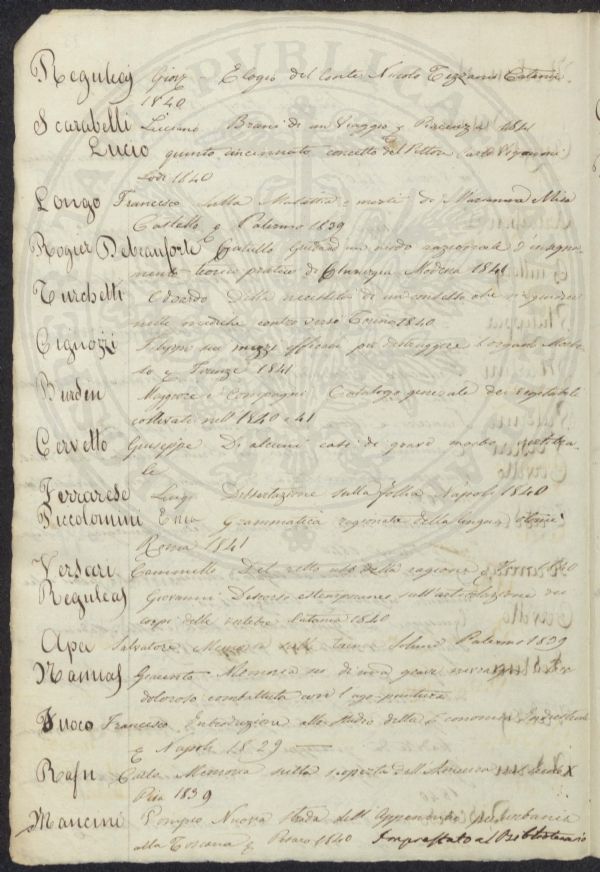 Reguleas Giov. Elogio del Conte Nicolo Tezzano Catania
1840
Scarabelli Luciano Brani di un Viaggio Piacenza 1841
Lucio quinto cincinnato concetto del Pittore Carlo
Lodi 1840
Longo Francesco sulla Malattia e morte di Marianna
Castello Palermo 1839
Rogier Debeaufort Catullo un modo razionale d'insegna-
mento teorico pratico di Chirurgia Modena 1841
Turchetti Odoardo Della necessità di un
nelle mediche Torino 1840
Cignozzi sui mezzi efficaci per distruggere
Firenze 1841
Burdin Maggiore e Compagni Catalogo generale dei vegetabili
coltivati nell 1840 e 41
Cervetto Giuseppe Di alcuni casi di grave morbo
le
Ferrarese Luigi Dissertazione sulla follia Napoli 1840
Piccolomini Enea Grammatica ragionata della lingua
Roma 1841
Versari Cammillo Del retto uso della ragione 1840
Reguleas Giovanni Discorso estemporaneo sull'articolazione dei
corpi delle vertebre Catania 1840
Apa Salvatore Memoria sulla Palermo 1839
Namias Giacinto Memoria su di una grave
doloroso combattuta con l'ago-puntura
Fuoco Francesco Introduzione allo Studio della Economia Industriale
Napoli 1829
Carlo Memoria sulla scoperta dell'America nel Secolo X
Pisa 1839
Mancini Pompeo Nuova strada dell'Appennino
alla Toscana Pesaro 1840 Imprestato al Bibliotecario